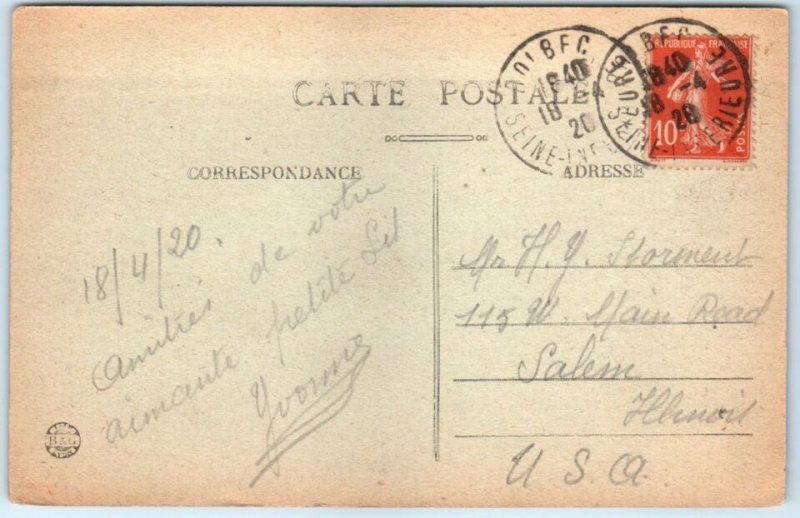 CARTE POSTALE
BOLBEC
18 40
18 -4
20
SEINE-INFÉRIEURE
BOLBEC
18 40
18 -4
20
SEINE-INFÉRIEURE
REPUBLIQUE FRANÇAISE
10
POSTES
CORRESPONDANCE
18/4/20.
Amitiés de votre
aimante petite
Yvonne
B & G
ADRESSE
Mr H. Y. Storment
115 W. Main Road
Salem
Illinois
U.S.A.